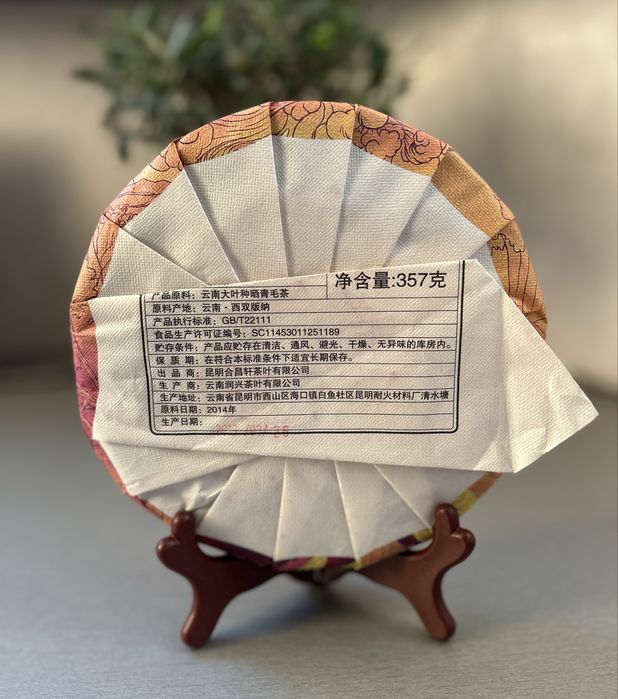 产品原料: 云南大叶种晒青毛茶
净含量:357克
原料产地: 云南·西双版纳
产品执行标准: GB/T22111
食品生产许可证编号: SC11453011251189
贮存条件: 产品应贮存在清洁、通风、避光、干燥、无异味的库房内。
保 质 期: 在符合本标准条件下适宜长期保存。
出 品 商: 昆明合昌轩茶叶有限公司
生 产 商: 云南润兴茶叶有限公司
生产地址: 云南省昆明市西山区海口镇白鱼社区昆明耐火材料厂清水塘
原料日期: 2014年
生产日期: